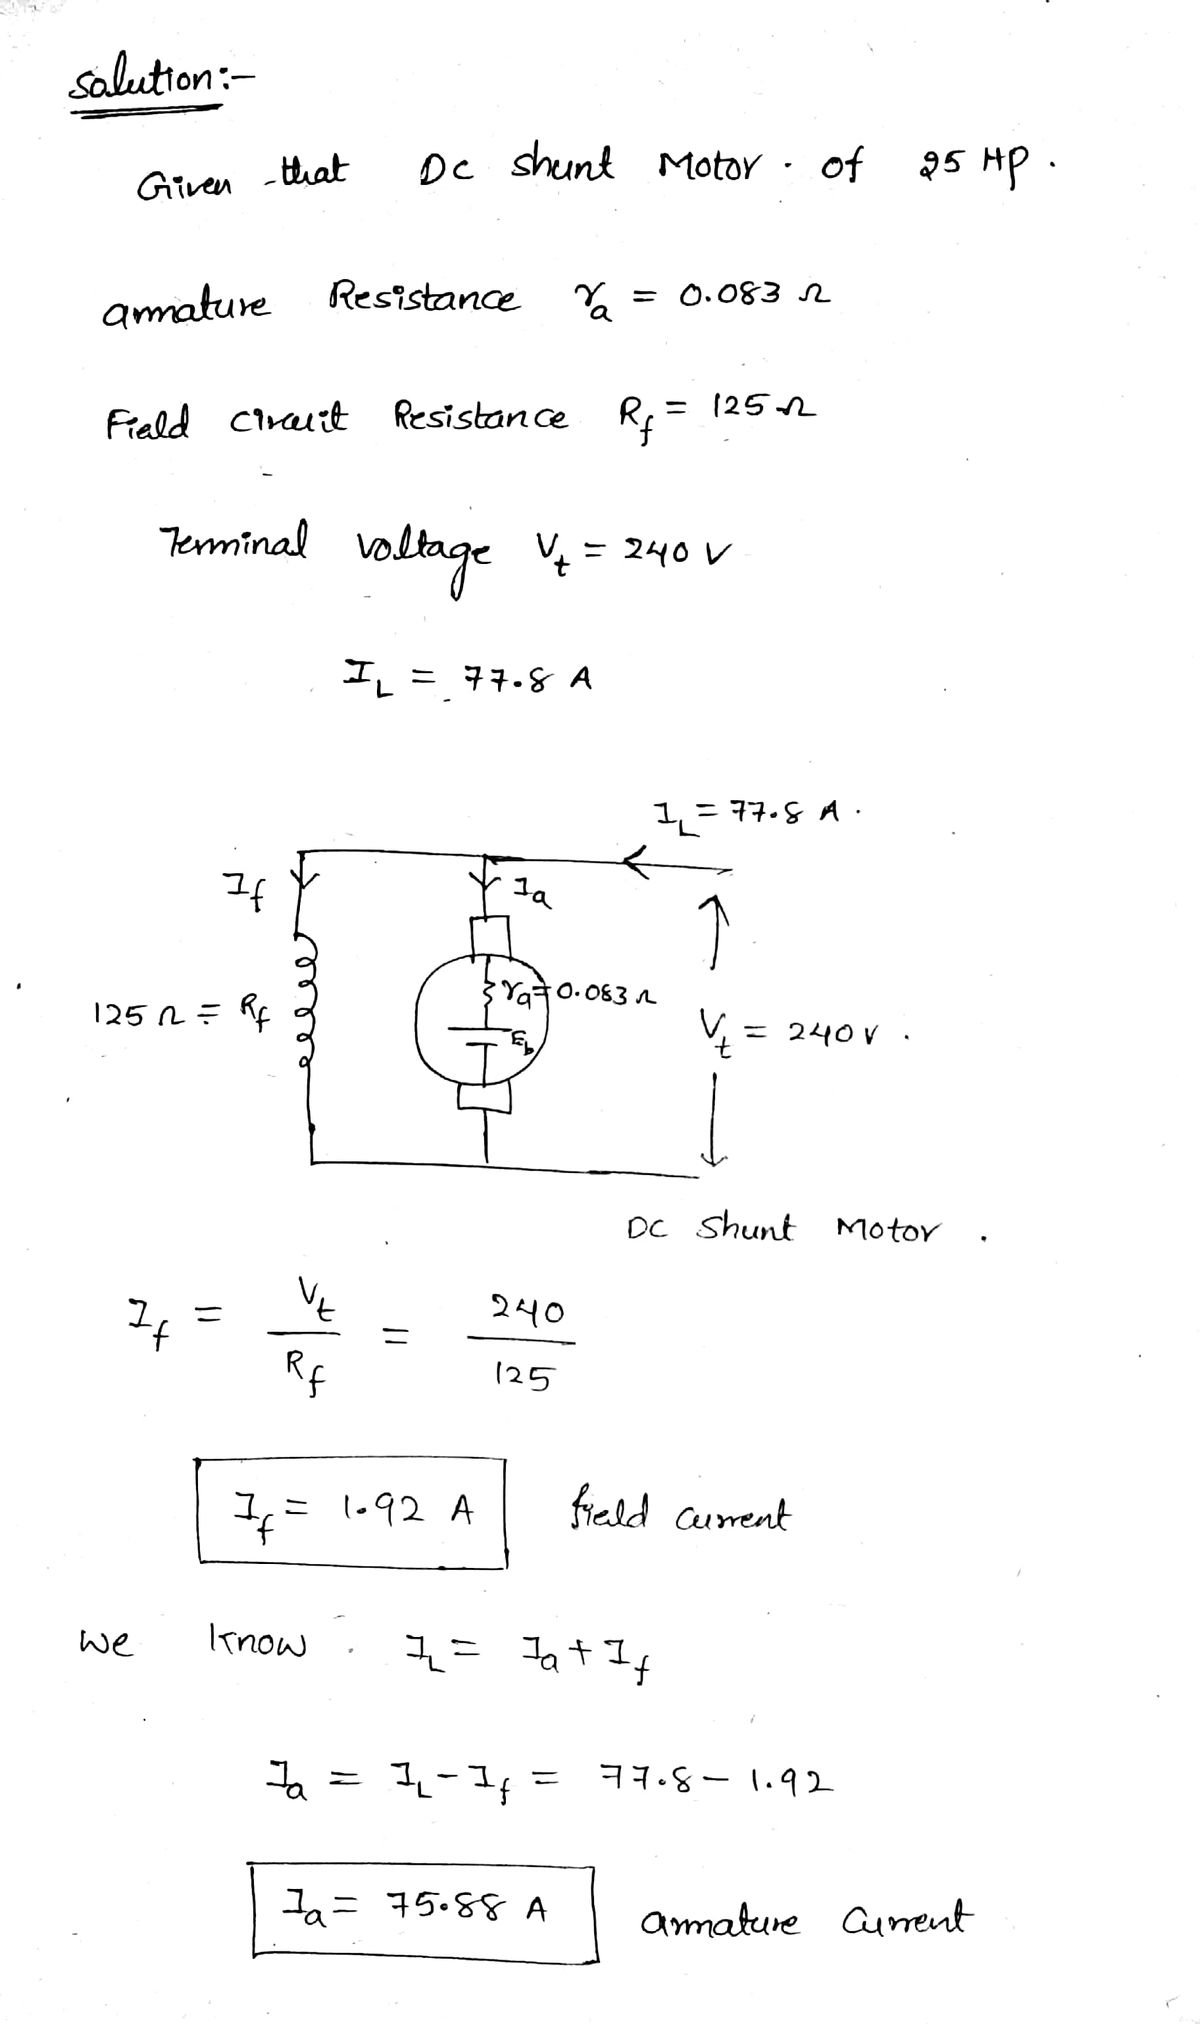 Solution:-
Given that DC shunt Motor. of 25 HP.
armature Resistance ra = 0.083 Ω
Field circuit Resistance Rf = 125 Ω
Terminal voltage Vt = 240 V
IL = 77.8 A
IL = 77.8 A.
If
Ia
ra = 0.083 Ω
125 Ω = Rf
Eb
Vt = 240 V.
DC shunt Motor.
If = Vt / Rf = 240 / 125
If = 1.92 A field current
we know. IL = Ia + If
Ia = IL - If = 77.8 - 1.92
Ia = 75.88 A armature current